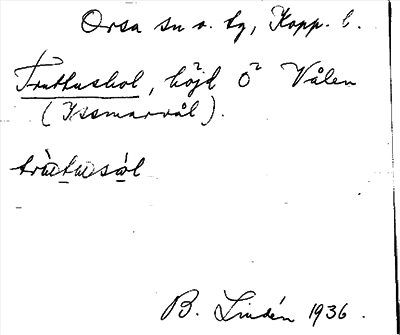 Orsa sn o. tg, Kopp. l.
Truttushol, höjd Ö Vålen
(Issmarvål).
tràtusol
B. Lindén 1936.